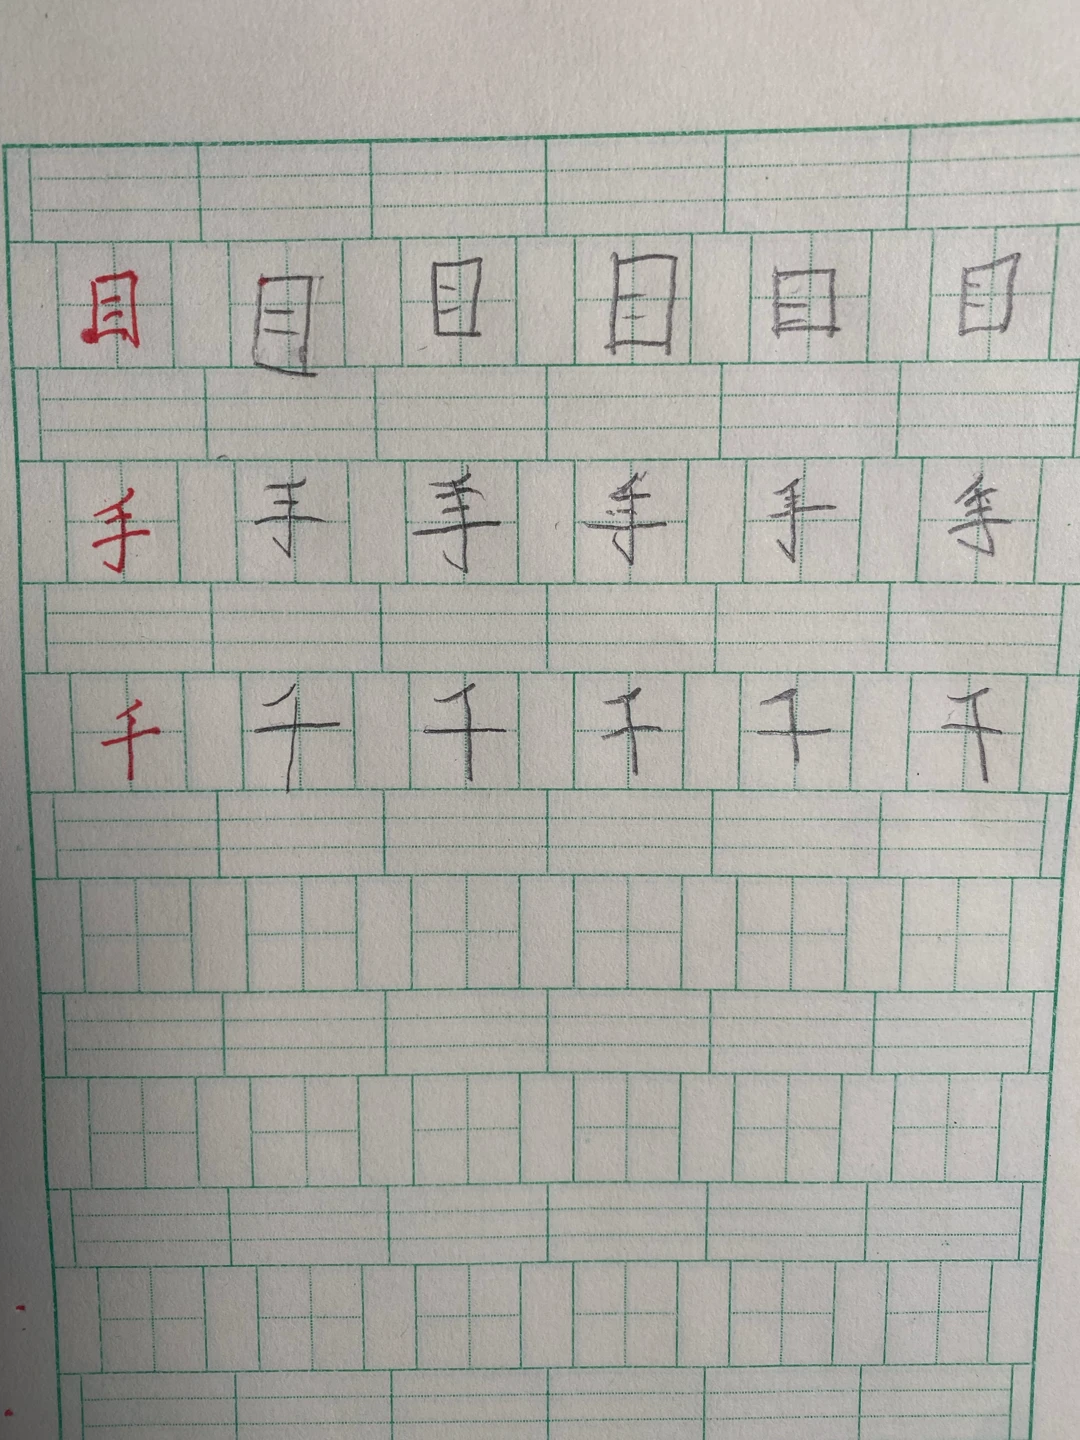 目 目 目 目 目 目
手 手 手 手 手 手
千 千 千 千 千 千